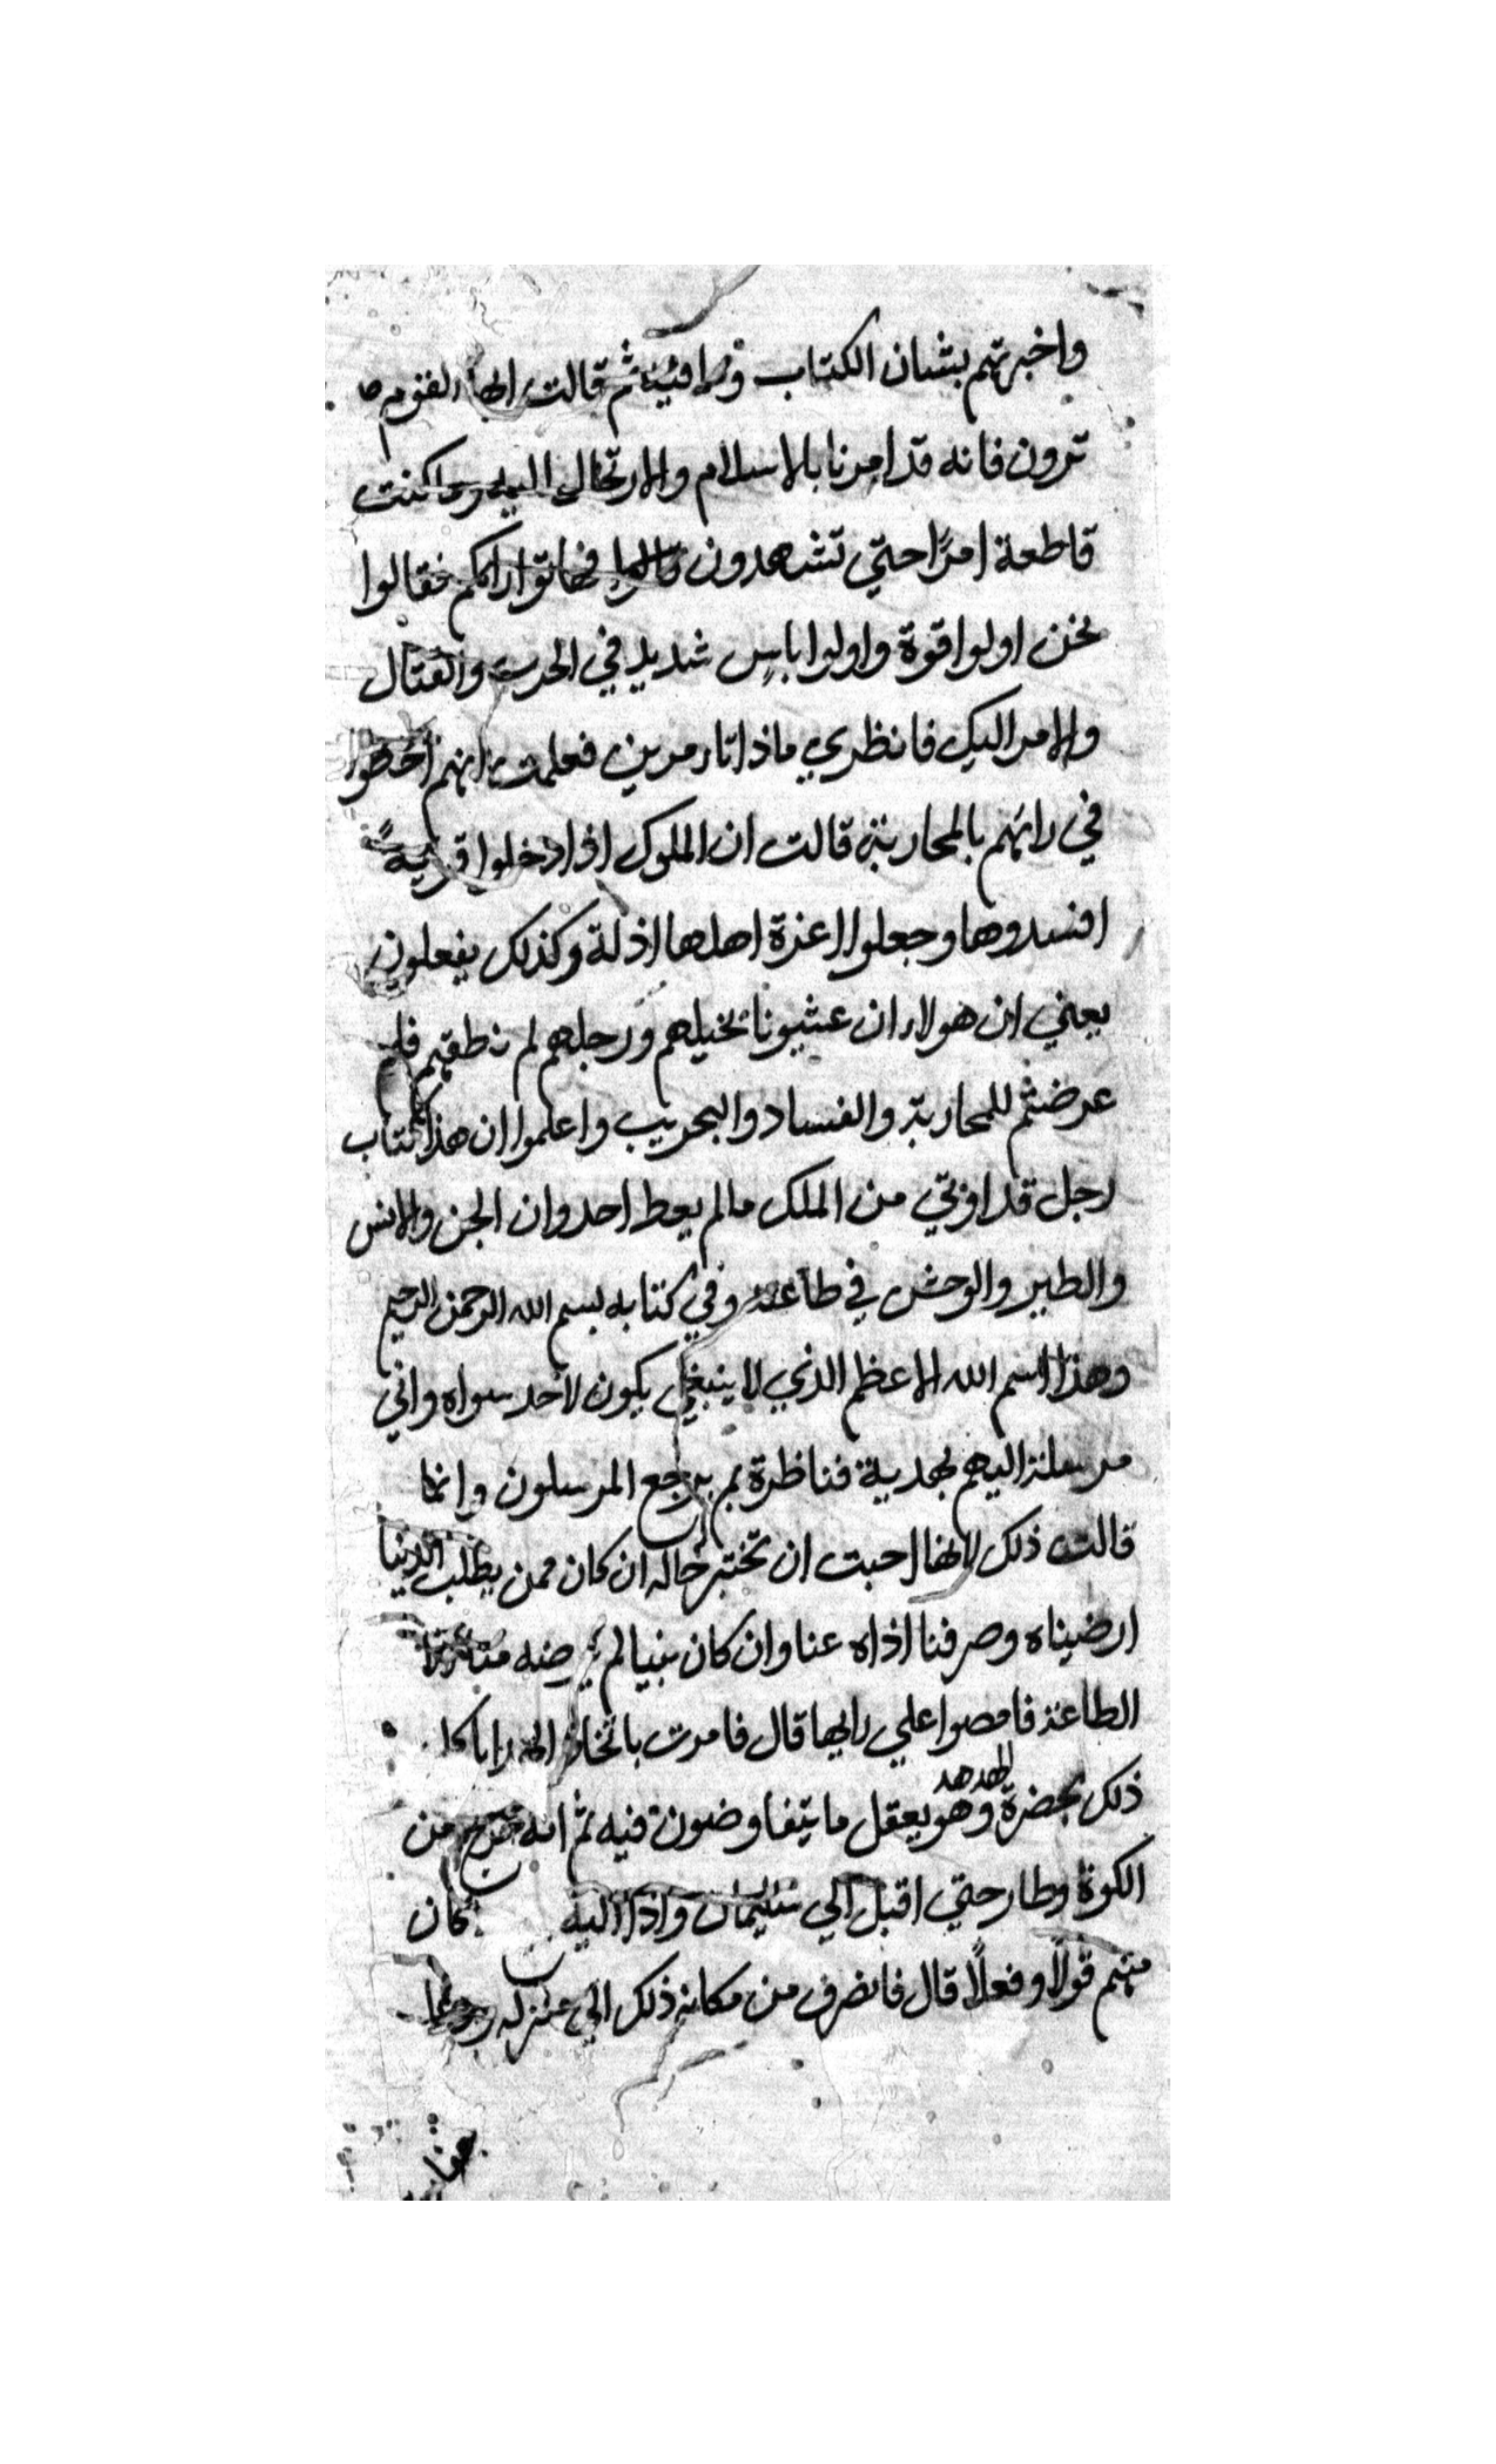 واخبرتهم بشان الكتاب وما فيه ثم قالت ايها القوم ما
ترون فانه قد امرنا بالاسلام والارتحال اليه وما كنت
قاطعة امرًا حتي تشهدون فهاتوا راكم فقالوا
نحن اولوا قوة واولوا باس شديد في الحرب والقتال
والامر اليك فانظري ماذا تامرين فعلمت انهم اخطوا
في رائهم بالمحاربة قالت ان الملوك اذا دخلوا قرية
افسدوها وجعلوا اعزة اهلها اذلة وكذلك يفعلون
يعني ان هولاء ان عشيونا بخيلهم ورجلهم لم نطقهم فلم
عرضتم للمحاربة والفساد والبحريب واعلموا ان هذا كتاب
رجل قد اوتي من الملك مالم يعط احد وان الجن والانس
والطير والوحش في طاعته وفي كتابه بسم الله الرحمن الرحيم
وهذا اسم الله الاعظم الذي لا ينبغي يكون لاحد سواه واني
مرسلة اليهم بهدية فناظرة بم يرجع المرسلون وانما
قالت ذلك لانها احبت ان تختبر حاله ان كان ممن يطلب الدنيا
ارضيناه وصرفنا اذاه عنا وان كان نبيا لم يرضه منا
الطاعة فامضوا علي رايها قال فامرت باتخاذ الهدايا كل
ذلك بحضرة الهدهد وهو يعقل ما يتفاوضون فيه ثم انه خرج من
الكوة وطار حتي اقبل الي سليمان واذا اليه كان
منهم قولًا وفعلًا قال فانصرف من مكانه ذلك الي منزله